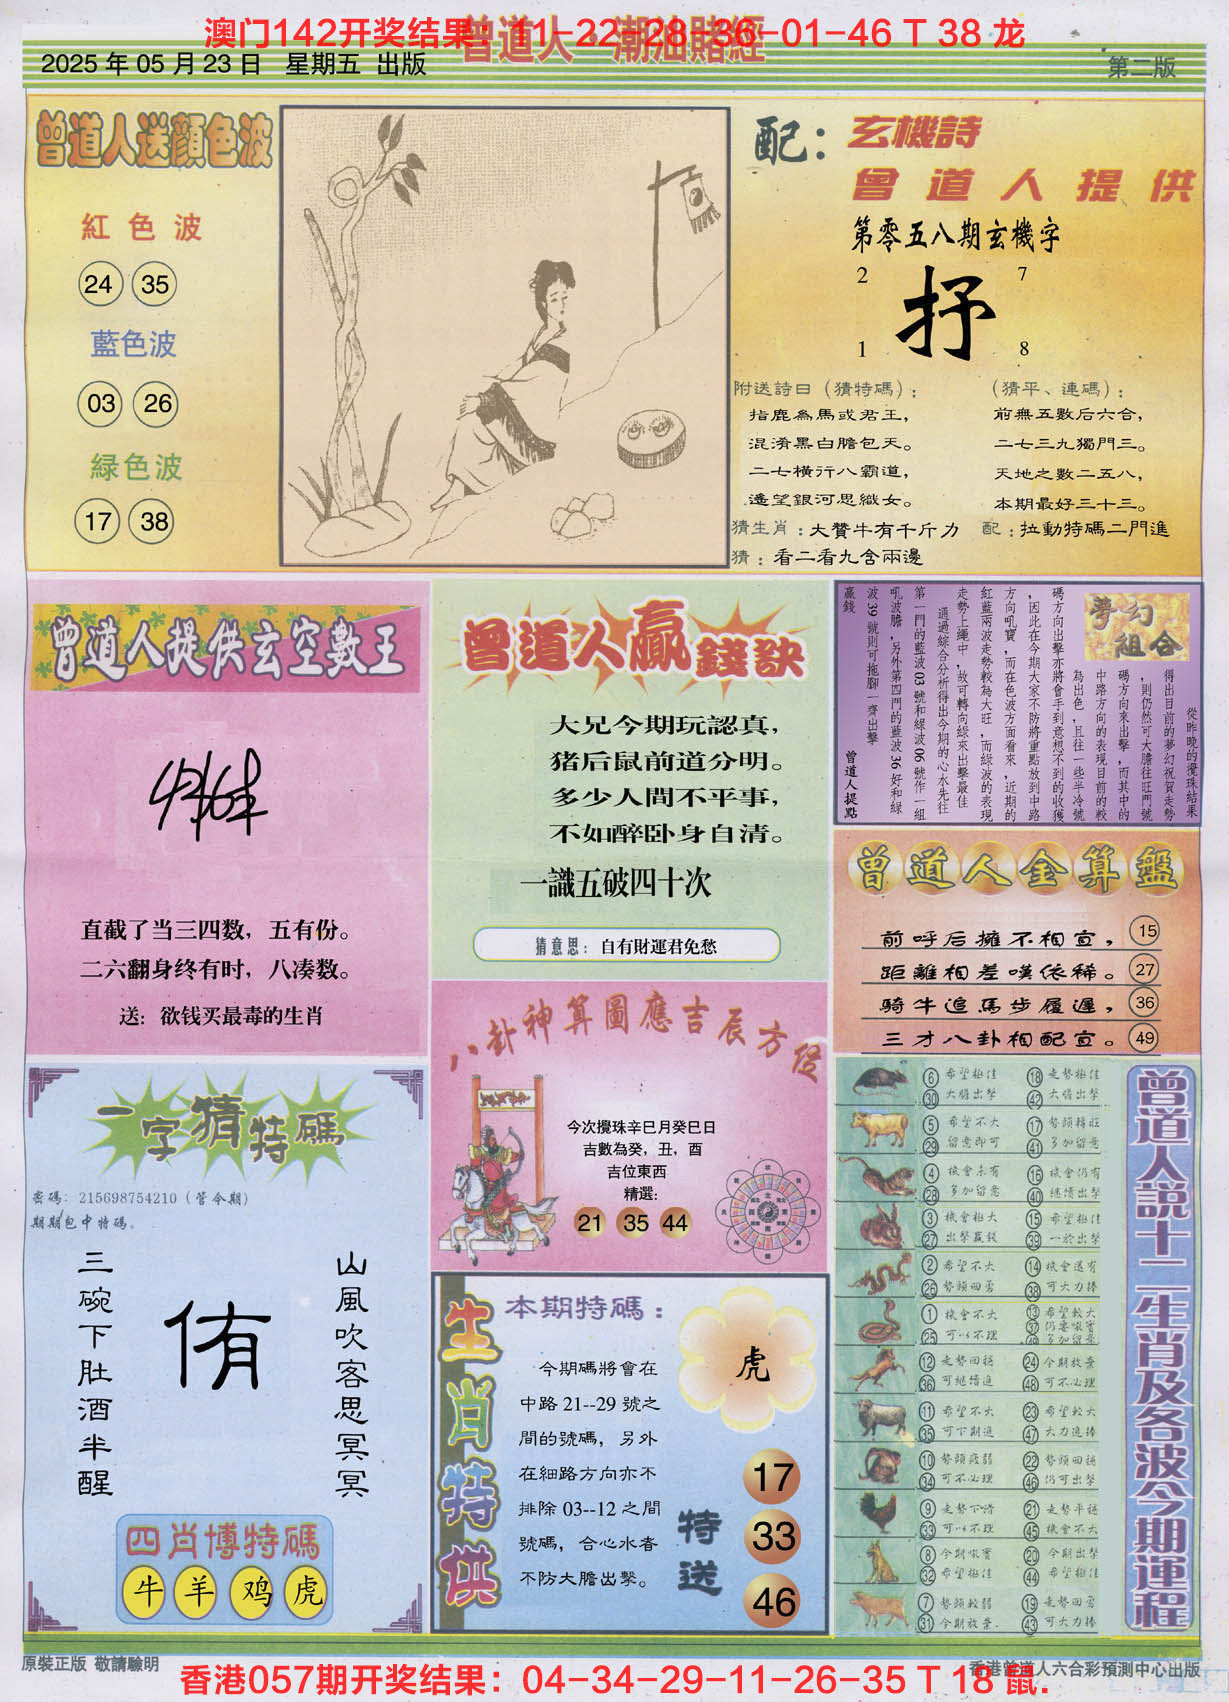 澳门142开奖结果：11-22-28-36-01-46 T 38 龙
曾道人·潮汕賭經
2025 年 05 月 23 日 星期五 出版
第二版
曾道人送顏色波
紅色波
24 35
藍色波
03 26
緑色波
17 38
配：
玄機詩
曾道人提供
第零五八期玄機字
2 7
抒
1 8
附送詩曰（猜特碼）：
指鹿為馬或君王，
混淆黑白膽包天。
二七橫行八霸道，
遙望銀河思織女。
（猜平、連碼）：
前無五數后六合，
二七三九獨門三。
天地之數二五八，
本期最好三十三。
猜生肖：大贊牛有千斤力
配：拉動特碼二門進
猜：看二看九含兩邊
曾道人提供玄空數王
直截了当三四数，五有份。
二六翻身终有时，八凑数。
送：欲钱买最毒的生肖
曾道人赢錢訣
大兄今期玩認真，
猪后鼠前道分明。
多少人間不平事，
不如醉卧身自清。
一識五破四十次
猜意思：自有財運君免愁
夢幻組合
從昨晚的攪珠結果
得出目前的夢幻祝賀走勢
，則仍然可大膽往旺門號
碼方向來出擊，而其中的
中路方向的表現目前的較
為出色，且往一些半冷號
碼方向出擊亦將會手到意想不到的收獲
，因此在今期大家不防將重點放到中路
方向吼寶，而在色波方面看來，近期的
紅藍兩波走勢較為大旺，而綠波的表現
走勢上繩中，故可轉向綠來出擊最佳
通過綜合分析得出今期的心水先往
第一門的藍波03號和綠波06號作一組
吼波膽，另外第四門的藍波36好和綠
波39號則可拖腳一齊出擊
贏錢
曾道人提點
曾道人金算盤
前呼后擁不相宜， 15
距離相差嘆依稀。 27
騎牛追馬步履遲， 36
三才八卦相配宜。 49
八卦神算圖應吉辰方位
今次攪珠辛巳月癸巳日
吉數為癸，丑，酉
吉位東西
精選：
21 35 44
一字猜特碼
密碼：215698754210（管令期）
期期包中特碼。
三碗下肚酒半醒
侑
山風吹客思冥冥
四肖博特碼
牛 羊 鸡 虎
生肖特供
本期特碼：
今期碼將會在
中路 21--29 號之
間的號碼，另外
在細路方向亦不
排除 03--12 之間
號碼，合心水者
不防大膽出擊。
虎
特送
17
33
46
曾道人說十二生肖及各波今期運程
6 希望極佳 18 走勢極佳
30 大膽出擊 42 大膽出擊
5 希望不大 17 勢頭轉旺
29 留意即可 41 多加留意
4 機會未有 16 機會仍有
28 多加留意 40 繼續出擊
3 機會極大 15 希望極佳
27 出擊贏錢 39 一於出擊
2 希望不大 14 機會還有
26 勢頭回勇 38 可大力捧
1 機會不大 13 希望較大
25 可以不理 37 49 多加留意
12 走勢回穩 24 今期放棄
36 可繼續追 48 可不必理
11 希望不大 23 希望較大
35 可下期追 47 大力追捧
10 勢頭疲弱 22 勢頭回穩
34 可不必理 46 仍可出擊
9 走勢下滑 21 走勢平穩
33 可以不理 45 機會不大
8 今期吼寶 20 今期出擊
32 希望極佳 44 希望極佳
7 勢頭較弱 19 走勢回勇
31 今期放棄 43 可大力捧
原裝正版 敬請驗明
香港曾道人六合彩預測中心出版
香港057期开奖结果：04-34-29-11-26-35 T 18 鼠.